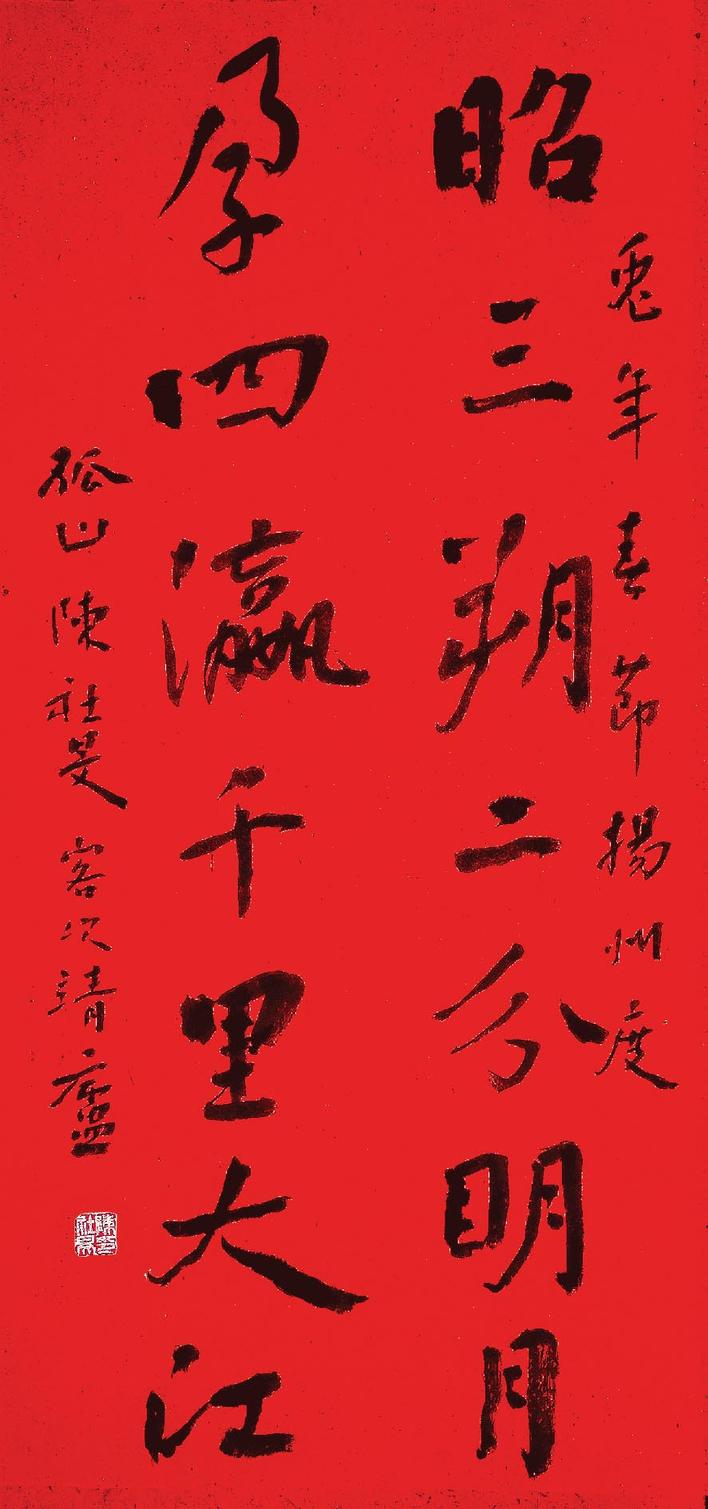 兔年春節揚州度
昭三朔二分明月
孕四瀛千里大江
孤山陳社旻客次靖廬